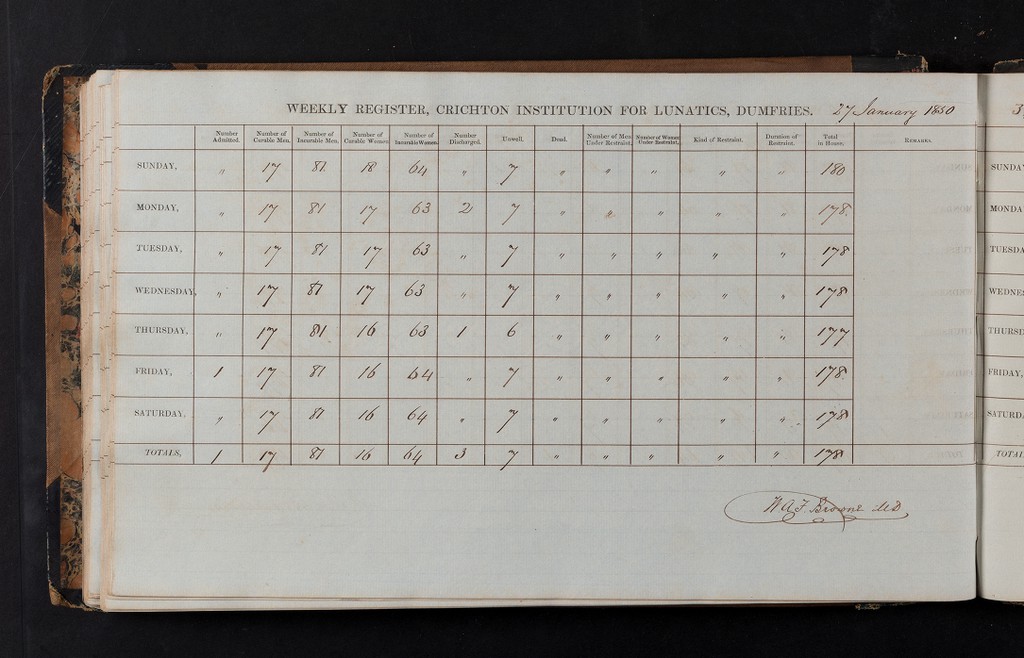 WEEKLY REGISTER, CRICHTON INSTITUTION FOR LUNATICS, DUMFRIES. 27 January 1850
Number Admitted. Number of Curable Men. Number of Incurable Men. Number of Curable Women. Number of Incurable Women. Number Discharged. Unwell. Dead. Number of Men Under Restraint. Number of Women Under Restraint. Kind of Restraint. Duration of Restraint. Total in House. REMARKS.
SUNDAY, " 17 81 18 64 " 7 " " " " " 180
MONDAY, " 17 81 17 63 2 7 " " " " " 178.
TUESDAY, " 17 81 17 63 " 7 " " " " " 178
WEDNESDAY, " 17 81 17 63 " 7 " " " " " 178
THURSDAY, " 17 81 16 63 1 6 " " " " " 177
FRIDAY, 1 17 81 16 64 " 7 " " " " " 178.
SATURDAY, " 17 81 16 64 " 7 " " " " " 178
TOTALS, 1 17 81 16 64 3 7 " " " " " 178
W A F Browne MD
SUNDAY
MONDA
TUESDA
WEDNES
THURSD
FRIDAY,
SATURD
TOTAL